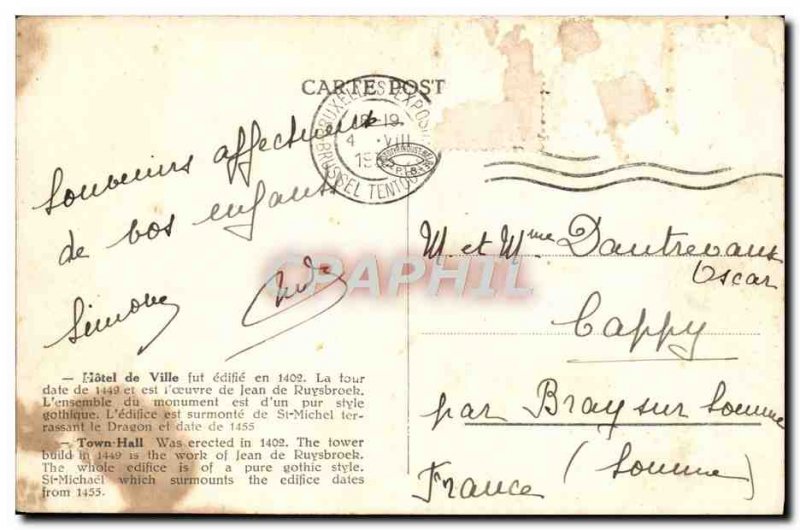 CARTE POST
BRUXELLES EXPOSI
18-19
4 VIII
19
BRUSSEL TENTOO
Souvenirs affectueux
de vos enfants
Simone
M. et Mme Dautrevaux
Oscar
Cappy
par Bray sur Somme
(Somme)
France
CPAPHIL
— Hôtel de Ville fut édifié en 1402. La tour
date de 1449 et est l'œuvre de Jean de Ruysbroek.
L'ensemble du monument est d'un pur style
gothique. L'édifice est surmonté de St-Michel ter-
rassant le Dragon et date de 1455
— Town-Hall Was erected in 1402. The tower
build in 1449 is the work of Jean de Ruysbroek.
The whole edifice is of a pure gothic style.
St-Michaël which surmounts the edifice dates
from 1455.